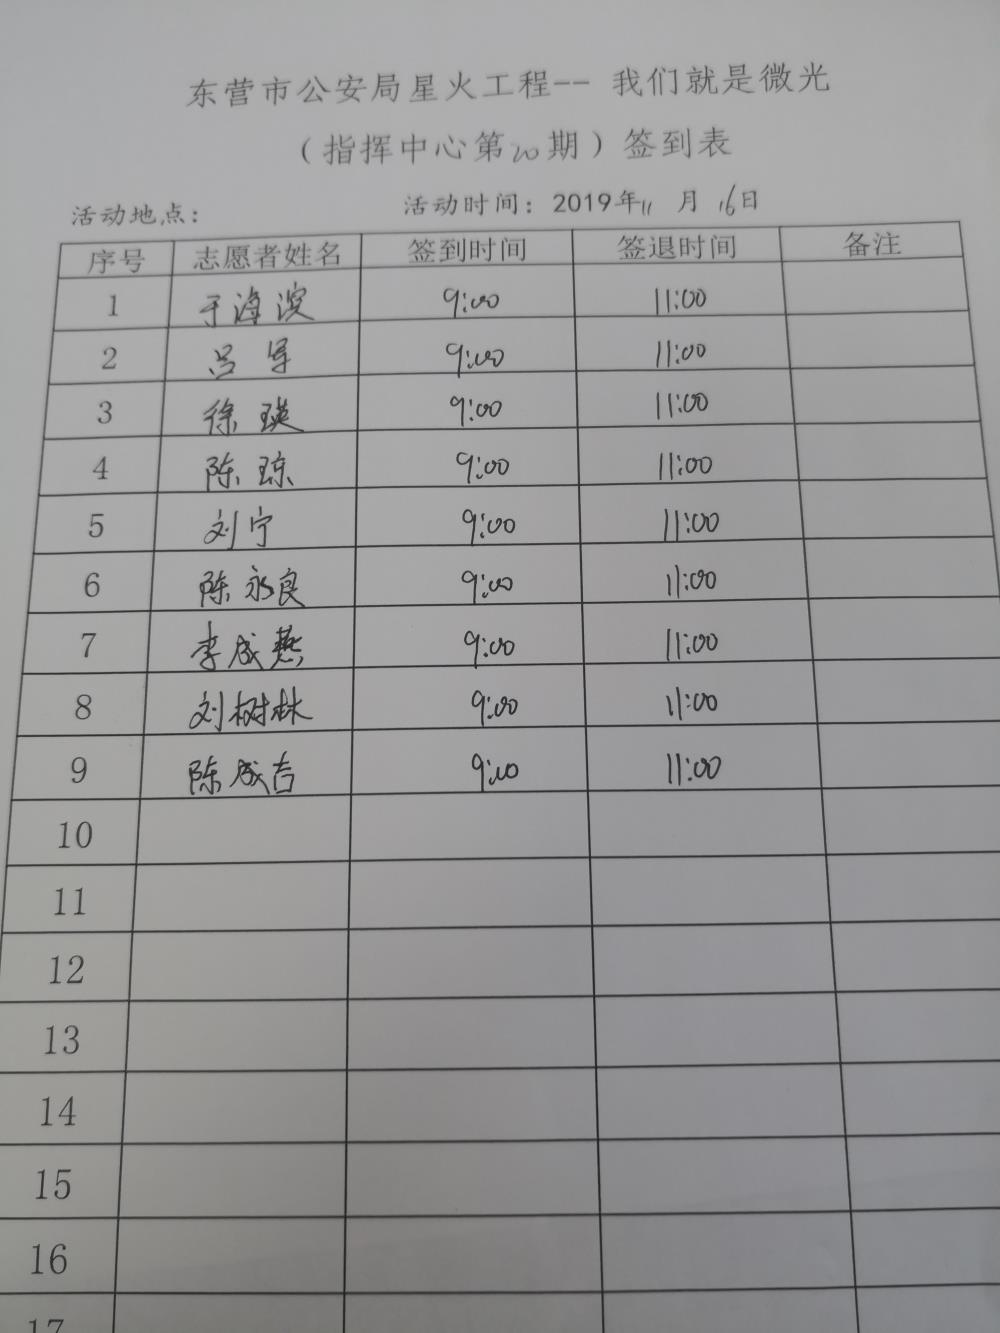 东营市公安局星火工程-- 我们就是微光
（指挥中心第20期）签到表
活动地点： 活动时间：2019年11月16日
序号 志愿者姓名 签到时间 签退时间 备注
1 于海滨 9:00 11:00
2 吕军 9:00 11:00
3 徐瑛 9:00 11:00
4 陈琼 9:00 11:00
5 刘宁 9:00 11:00
6 陈永良 9:00 11:00
7 李成燕 9:00 11:00
8 刘树林 9:00 11:00
9 陈成吉 9:00 11:00
10
11
12
13
14
15
16
17